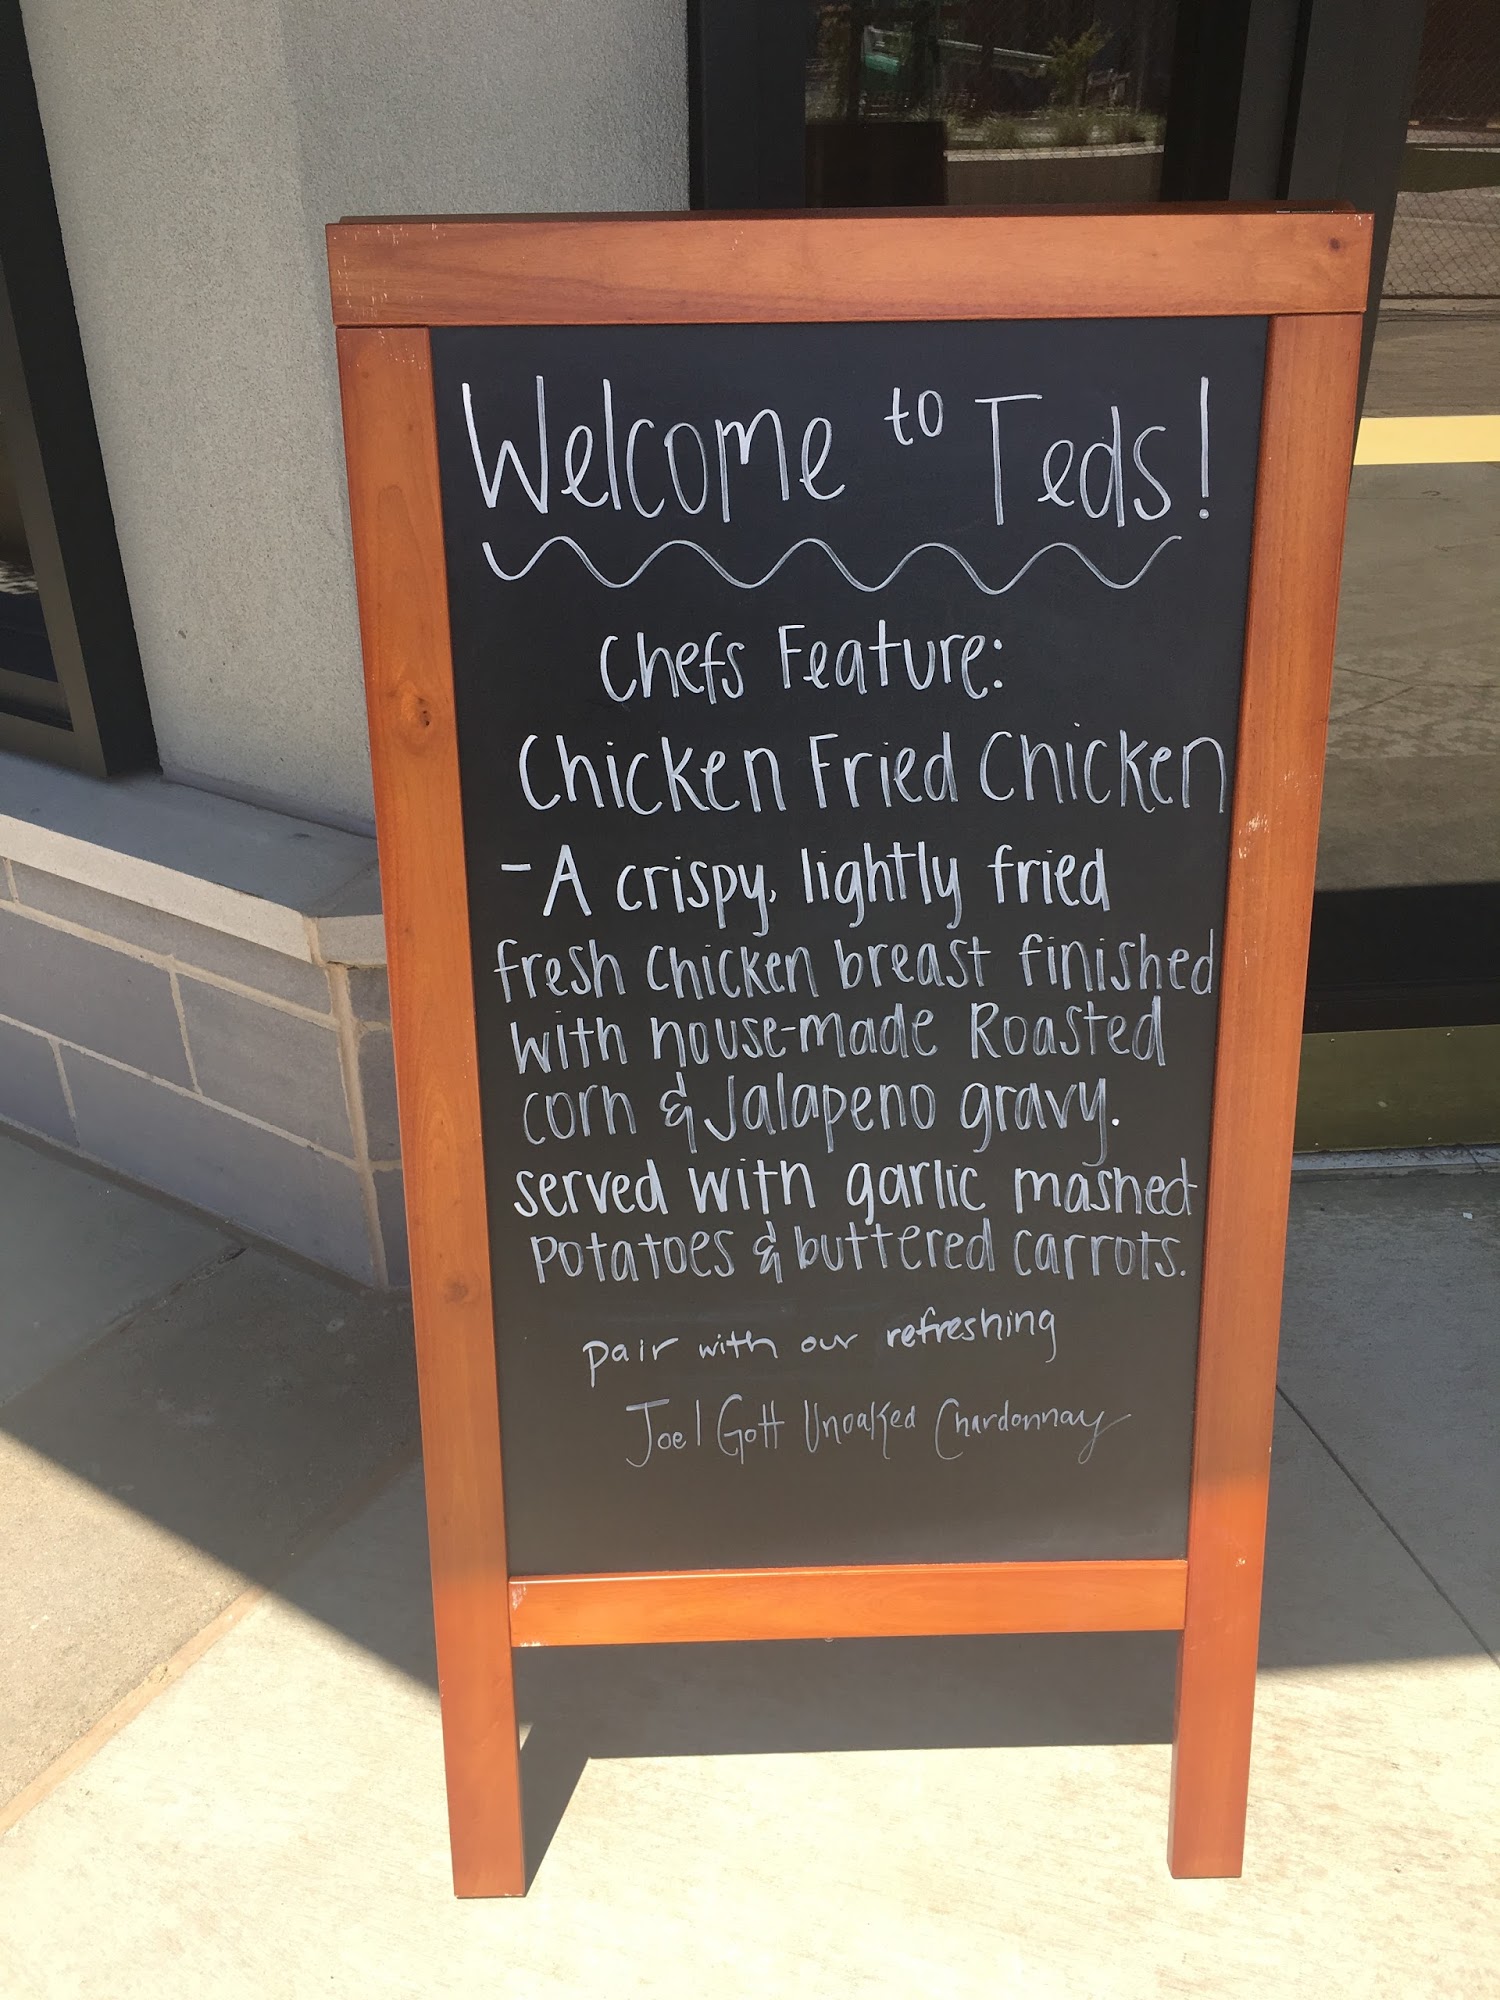 Welcome to Teds!
Chefs Feature:
Chicken Fried Chicken
- A crispy, lightly fried
fresh chicken breast finished
with house-made Roasted
corn & Jalapeno gravy.
served with garlic mashed
potatoes & buttered carrots.
pair with our refreshing
Joel Gott Unoaked Chardonnay